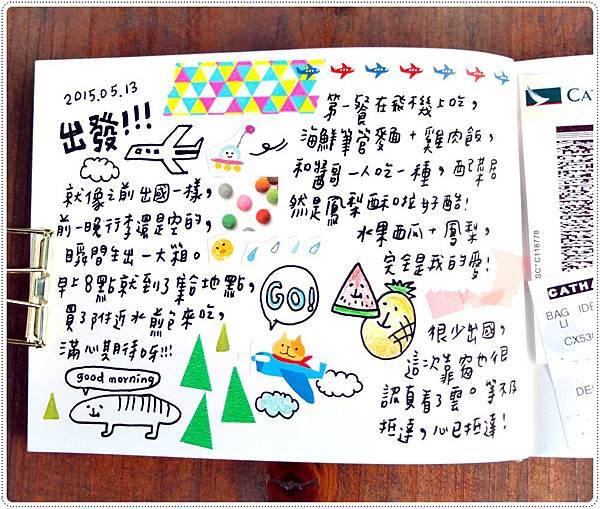 2015.05.13
出發!!!
就像之前出國一樣,
前一晚行李還是空的,
瞬間生出一大箱。
早上8點就到了集合地點,
買了附近水煎包來吃,
滿心期待呀!!!
good morning
GO!
第一餐在飛機上吃,
海鮮筆管麵+雞肉飯,
和醬哥一人吃一種,配菜居
然是鳳梨酥啦好酷!
水果西瓜+鳳梨,
完全是我的愛!
很少出國,
這次靠窗也很
認真看了雲。等不及
抵達,心已抵達!
CA
SC"C118778
CATHA
BAG IDE
LI
CX530
DES